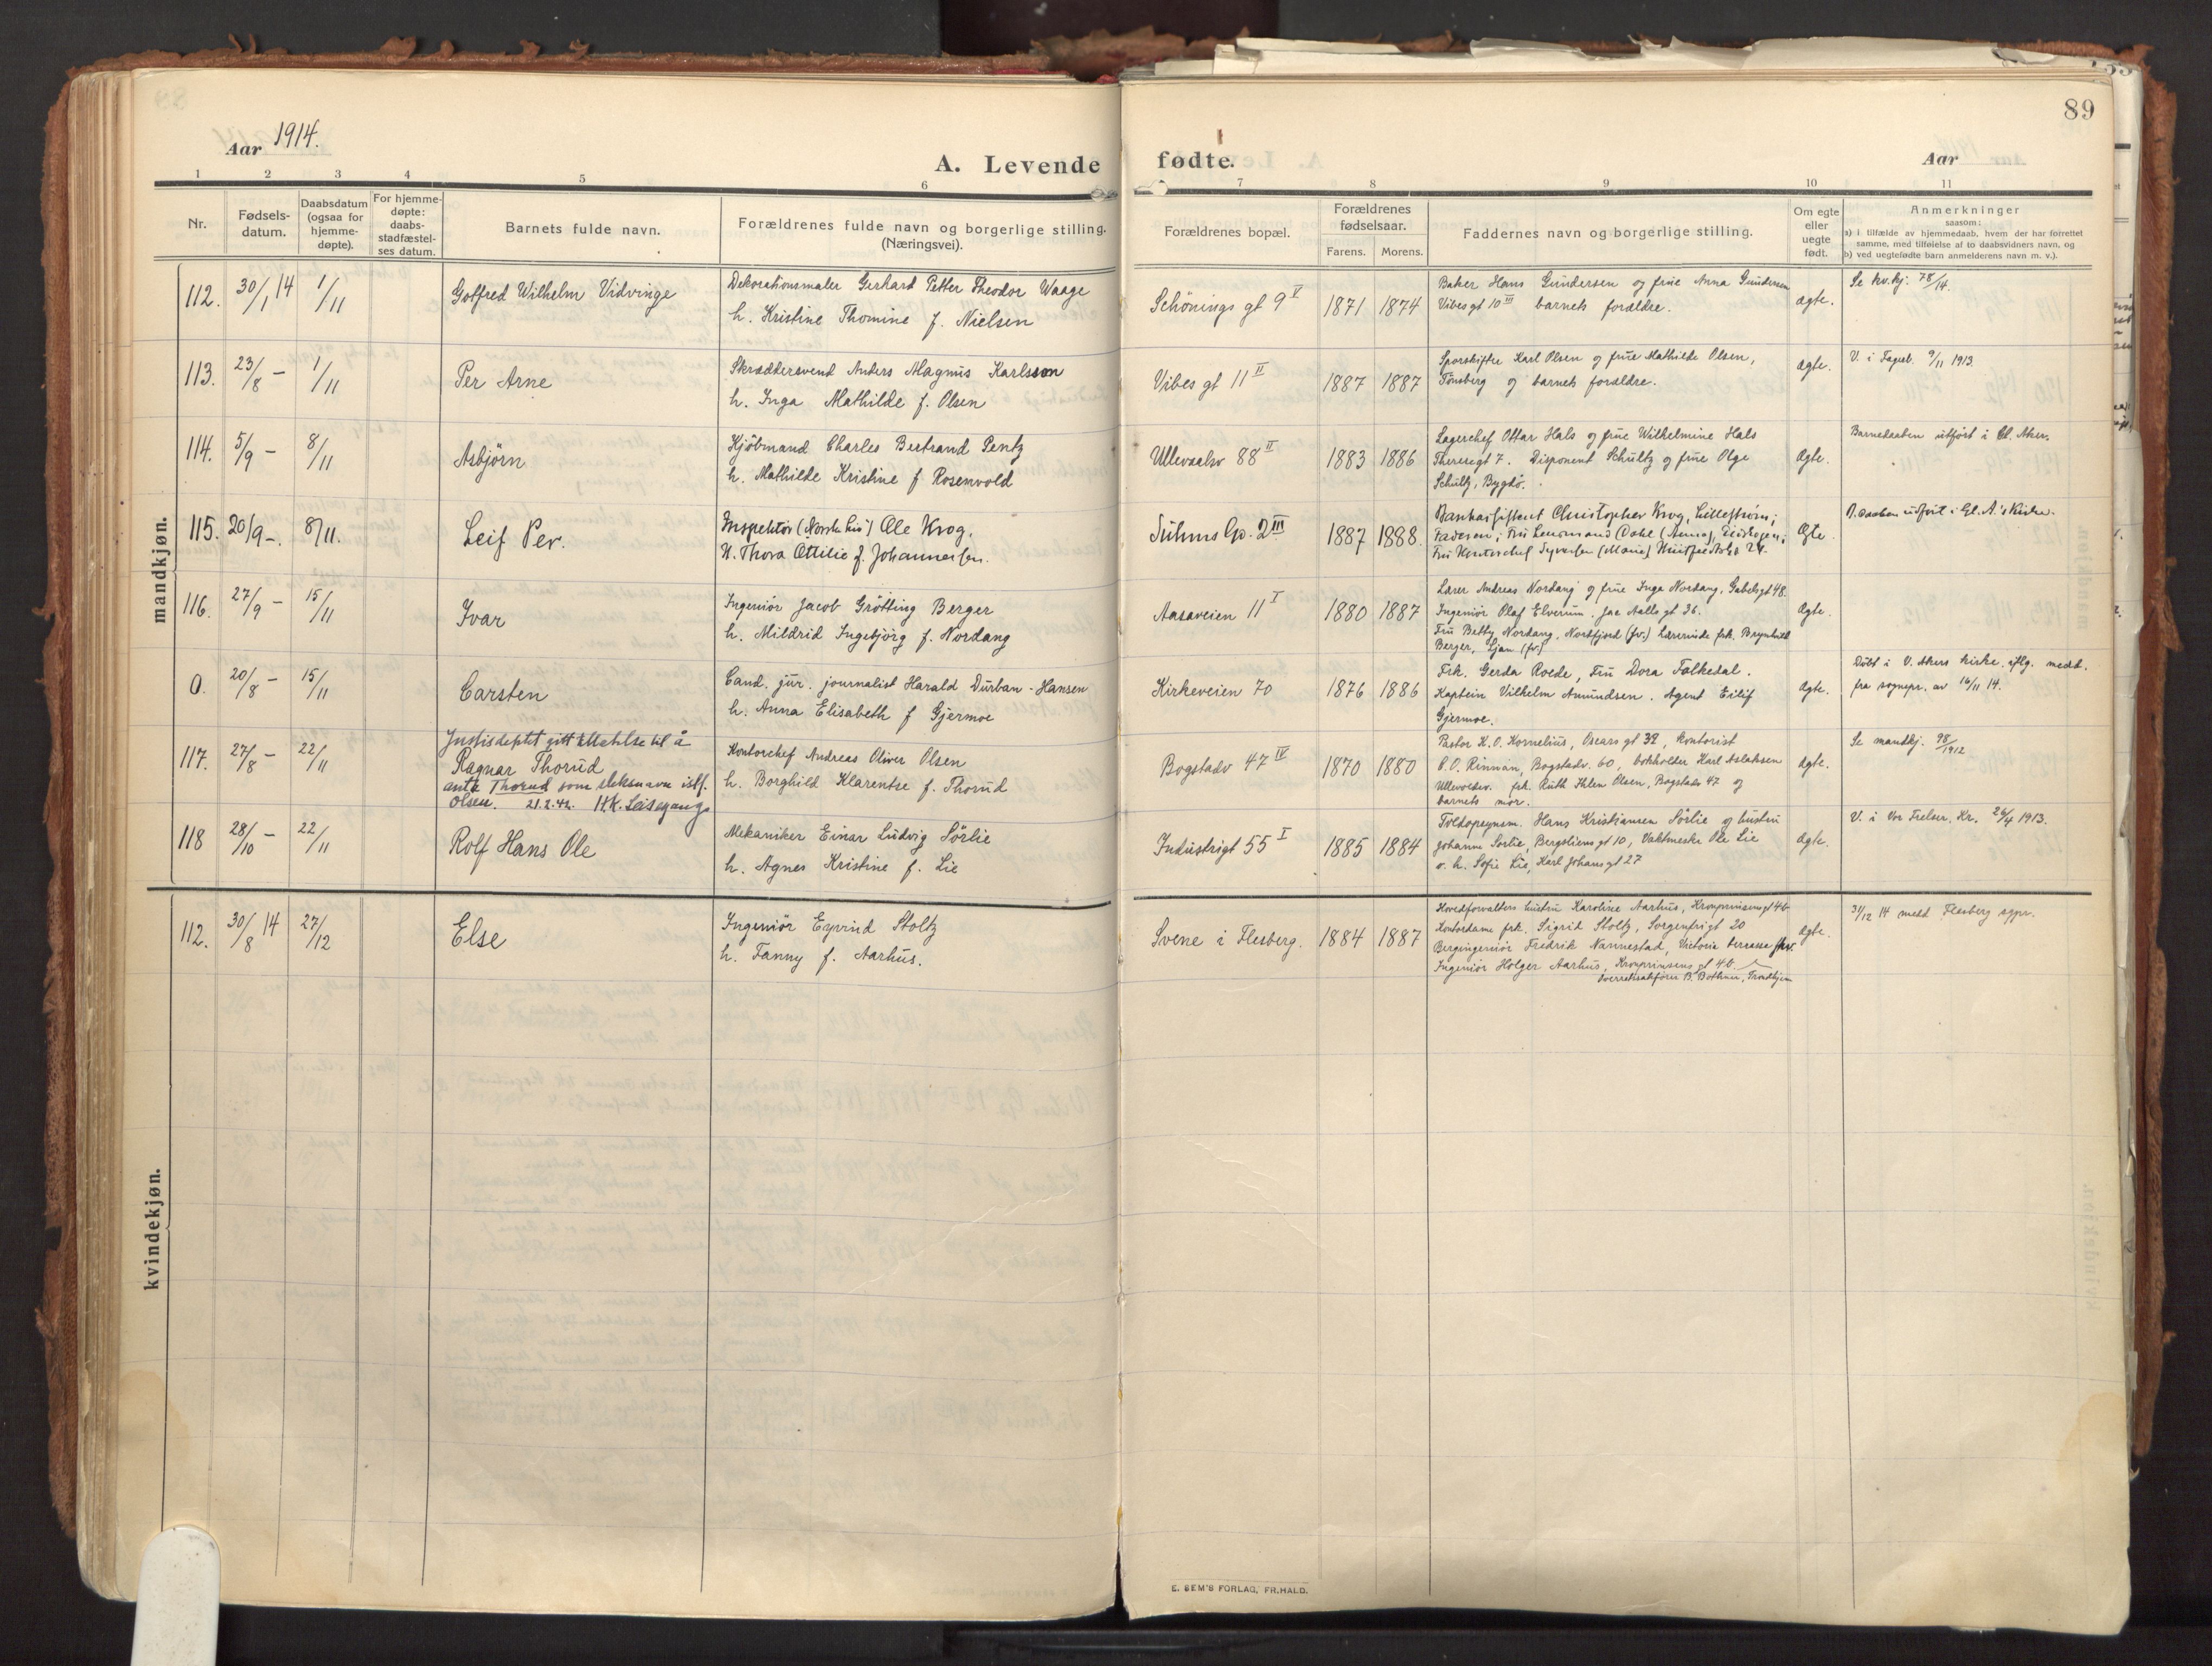 89
Aar 1914.
A. Levende fødte.
Aar
1 2 3 4 5 6 7 8 9 10 11
Nr.
Fødsels-
datum.
Daabsdatum
(ogsaa for
hjemme-
døpte).
For hjemme-
døpte:
daabs-
stadfæstel-
ses datum.
Barnets fulde navn.
Forældrenes fulde navn og borgerlige stilling.
(Næringsvei).
Forældrenes bopæl.
Forældrenes
fødselsaar.
Farens. Morens.
Faddernes navn og borgerlige stilling.
Om egte
eller
uegte
født.
Anmerkninger
saasom:
a) i tilfælde av hjemmedaab, hvem der har forrettet
samme, med tilføielse af to daabsvidners navn, og
b) ved uegtefødte barn anmelderens navn m. v.).
mandkjøn.
112. 30/1 14 1/11
Gotfred Wilhelm Vidvinge
Dekorationsmaler Gerhard Petter Theodor Waage
h. Kristine Thomine f. Nielsen
Schönings gt 9 V
1871 1874
Baker Hans Gundersen og frue Anna Gundersen
Vibesgt 10 III barnets forældre.
ægte.
Se kv.kj. 78/14.
113. 23/8 - 1/11
Per Arne
Skræddersvend Anders Magnus Karlsson
h. Inga Mathilde f. Olsen
Vibes gt 11 II
1887 1887
Sporskifter Karl Olsen og frue Mathilde Olsen,
Tønsberg og barnets forældre.
ægte.
V. i Fageb. 9/11 1913.
114. 5/9 - 8/11
Asbjörn
Kjöbmand Charles Bertrand Pentz
h. Mathilde Kristine f Rosenvold
Ullevaalsv 88 II
1883 1886
Lagerchef Ottar Hals og frue Wilhelmine Hals
Theresegt 7. Disponent Schultz og frue Olga
Schultz, Bygdö.
ægte.
Barnedaaben utfört i Gl. Aker.
115. 20/9 -. 8/11.
Leif Per.
Inspektör (Norske Liv) Ole Krog,
H. Thora Ottilie f. Johannessen.
Suhms Gt. 2 III
1887 1888.
Christopher Krog, Lilleström;
Fru (Anna),
Fru (Marie)
ægte
Daaben utfört i Gl. A.'s Kirke.
116. 27/9 - 15/11
Ivar
Ingeniör Jacob Grötting Berger
h. Mildrid Ingebjörg f. Nordang
Aasaveien 11 I
1880 1887
Lærer Andreas Nordang og frue Inga Nordang, Gabelsgt 48.
Ingeniör Olaf Elverum. Jac Aalls gt 36.
Fru Betty Nordang, Nordfjord (fr.) Lærerinde frk. Brynhild
Berger, Ljan (fr.)
ægte.
0. 20/8 - 15/11
Carsten
Cand. jur. journalist Harald Durban-Hansen
h. Anna Elisabeth f Gjermoe
Kirkeveien 70
1876 1886
Frk. Gerda Roede, Fru Dora Falkedal.
Kaptein Vilhelm Amundsen. Agent Eilif
Gjermoe.
ægte.
Döbt i V. Akers kirke, iflg. medd.
fra sognepr. av 16/11 14.
Justisdeptet gitt tillatelse til å
117. 27/8 - 22/11
Ragnar Thorud
anta Thorud som sleksnavn istf.
Olsen. 21.2.42. H.K. Leisegang
Kontorchef Andreas Oliver Olsen
h. Borghild Klarentse f. Thorud
Bogstadv 47 IV
1870 1880
Pastor K. O. Kornelius, Oscars gt 32, kontorist
P.O. Rinnan, Bogstadv. 60, bokholder Karl Aslaksen
Ullevoldsv. frk. Ruth Ihlen Olsen, Bogstadv 47 og
barnets mor.
ægte.
Se mandkj. 98/1912
118 28/10 - 22/11
Rolf Hans Ole
Mekaniker Einar Ludvig Sörlie
h. Agnes Kristine f. Lie
Industrigt 55 I
1885 1884
Toldopsynsm. Hans Kristiansen Sörlie og hustru
Johanne Sörlie, Bergsliens gt 10, Vaktmester Ole Lie
o. h. Sofie Lie, Karl Johans gt 27
ægte.
V. i Vor Frelser, Kr. 26/4 1913.
kvindekjøn.
112. 30/8 14 27/12
Else
Ingeniör Eyvind Stoltz
h. Fanny f. Aarhus.
Svene i Flesberg.
1884 1887
Hovedforvalters hustru Karoline Aarhus, Kronprinsensgt 4b
Kontordame frk. Sigrid Stoltz, Sorgenfrigt 20
Bergingeniör Fredrik Nannestad, Victoria terrasse
Ingeniör Holger Aarhus, Kronprinsens gt 4b.
Overretssakförer B. Bothner, Trondhjem
ægte.
31/12 14 medd Flesberg sgpr.
E. SEM'S FORLAG, FR.HALD.